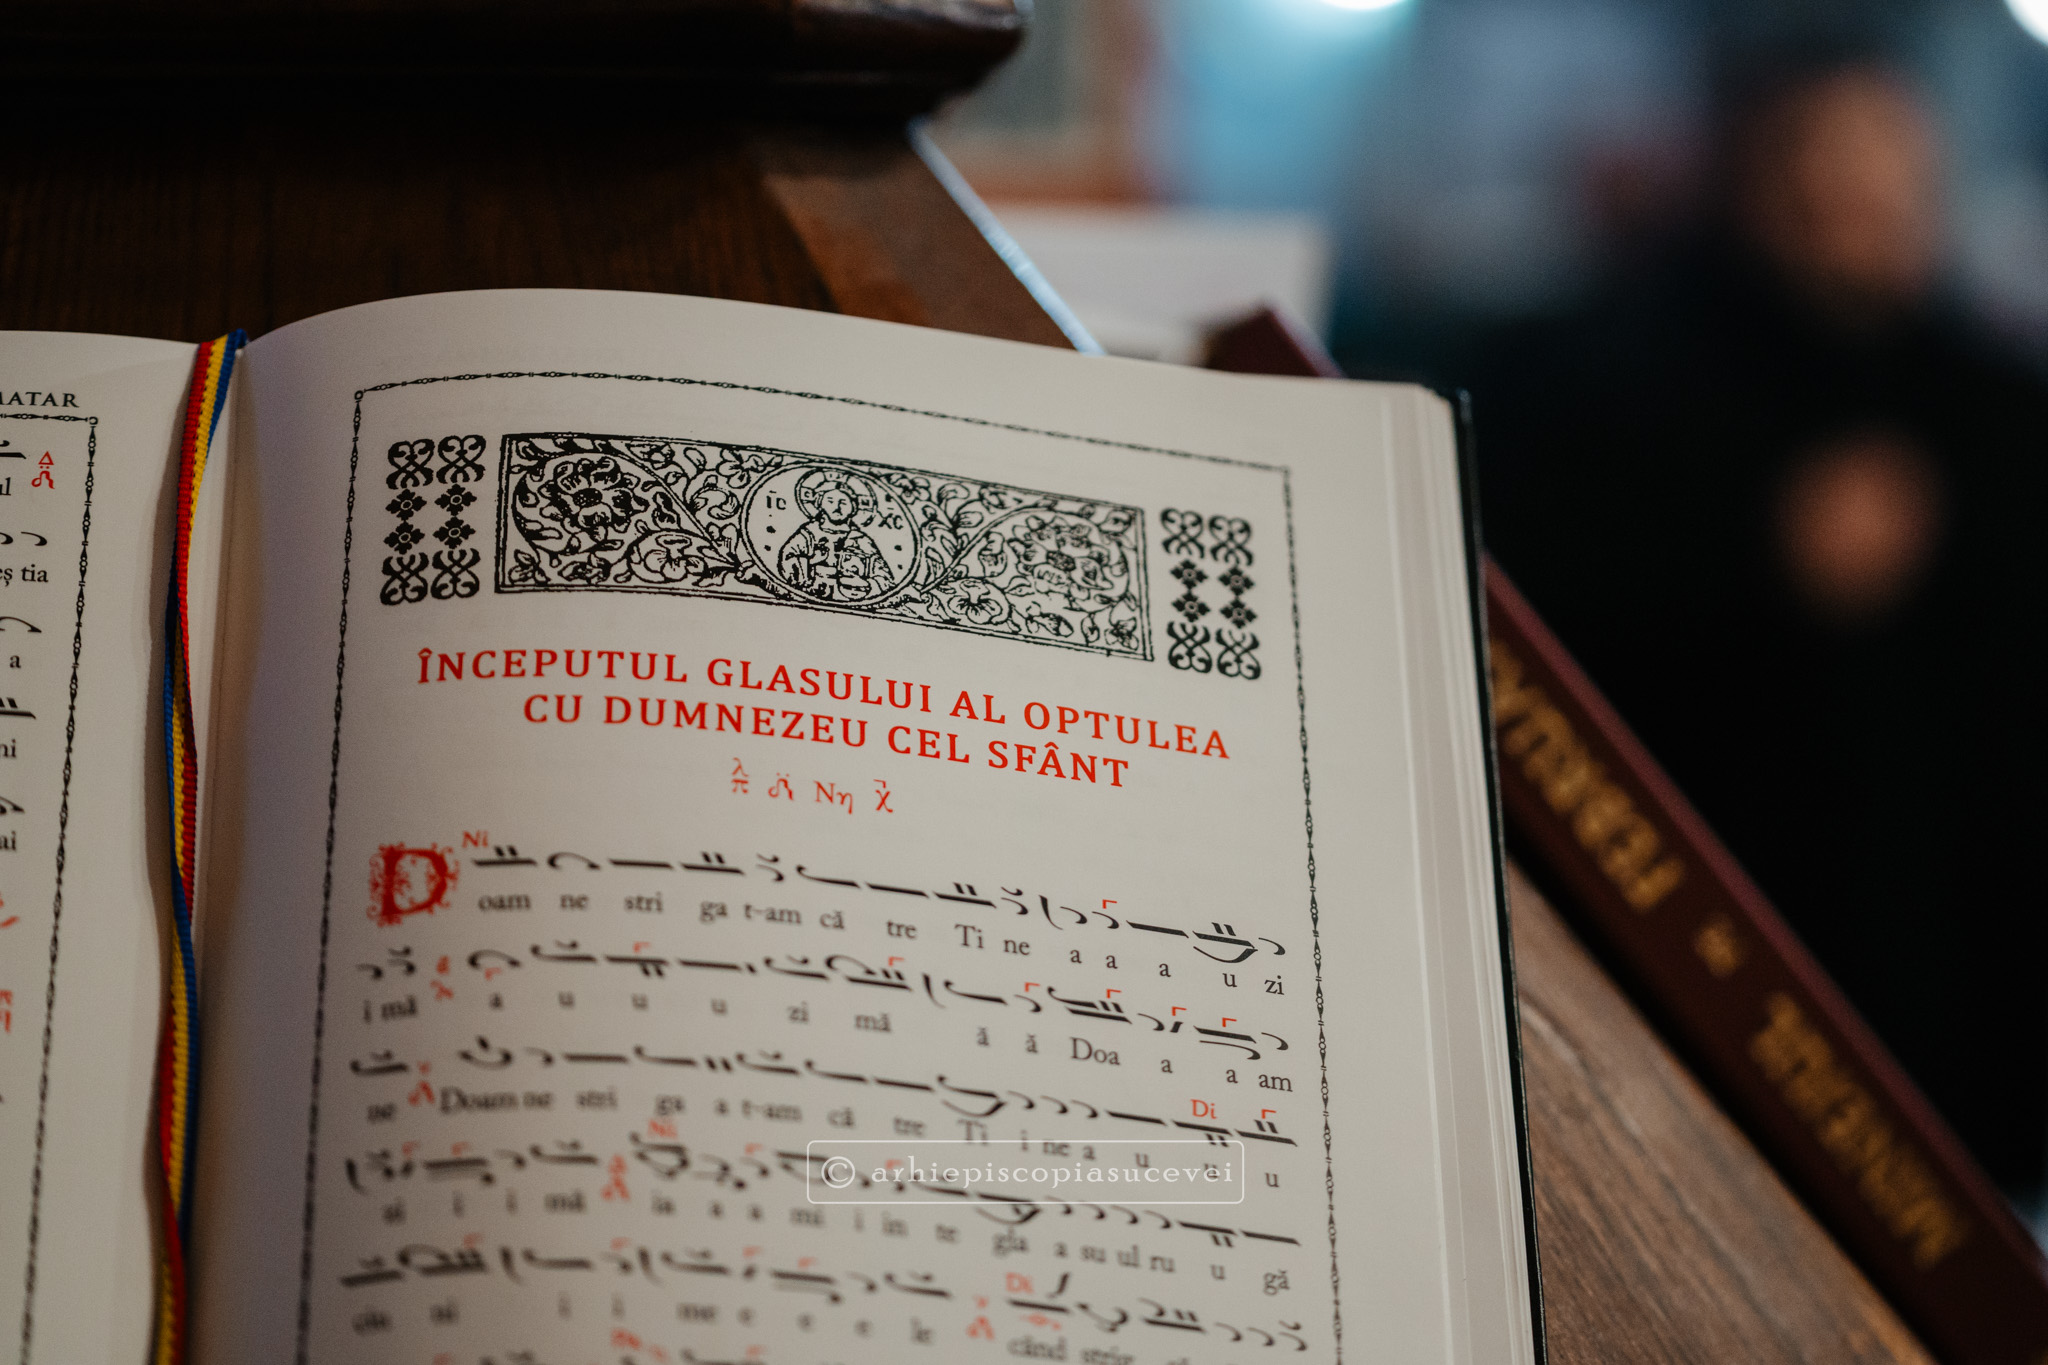 MATAR
ul
eș tia
a
ni
ai
IC XC
ÎNCEPUTUL GLASULUI AL OPTULEA
CU DUMNEZEU CEL SFÂNT
λ π Νη χ
Ni
Doam ne stri ga t-am că tre Ti ne a a a u zi
i mă a u u u zi mă ă ă Doa a a am
ne Doam ne stri ga a t-am că tre Ti i ne a u u u
Di
Ni
zi i i mă ia a a mi i in te gla a su ul ru u gă
ciu ni i i me e e e le când strig
Di
© arhiepiscopiasucevei
MINEIUL * FEBRUA